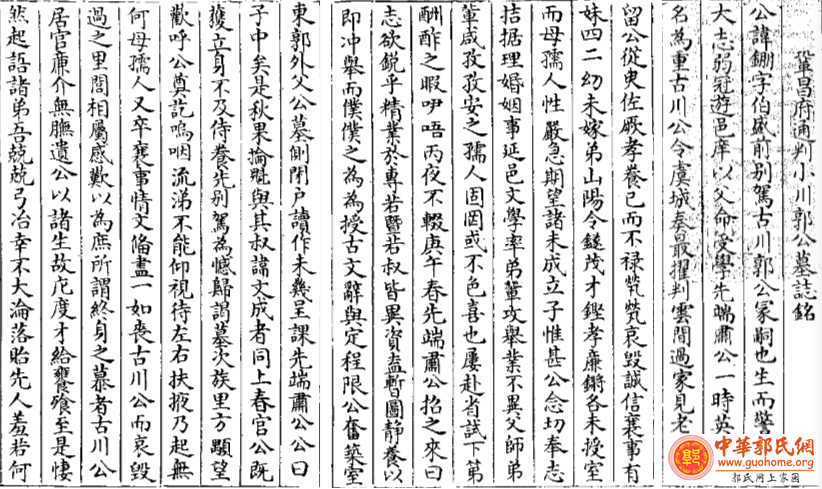 鞏昌府通判小川郭公墓誌銘
公諱錋字伯盛前别駕古川郭公冢嗣也生而警
大志弱冠遊邑庠以父命受學先端肅公一時英
名為重古川公令虞城奏最擢判雲間過家見老
留公從臾佐厥孝養已而不祿煢煢哀毀誠信襄事有
妹四二幼未嫁弟山陽令鐩茂才鏗孝廉鏘各未授室
而母孺人性嚴急期望諸未成立子惟甚公念切奉志
拮据理婚姻事延邑文學率弟輩攻舉業不異父師弟
輩咸孜孜安之孺人固罔或不色喜也屢赴省試下第
酬酢之暇咿唔丙夜不輟庚午春先端肅公招之來曰
志欲銳乎精業於專若暨若叔皆異資盍暫圖靜養以
即沖舉而僕僕之為為授古文辭與定程限公奮築室
東郭外父公墓側閉户讀作未幾呈課先端肅公公曰
子中矣是秋果掄魁與其叔諱文成者同上春官公既
獲立身不及侍養先别駕為憾歸謁墓次族里方顒望
歡呼公奠訖嗚咽流涕不能仰視待左右扶掖乃起無
何母孺人又卒襄事情文俻盡一如喪古川公而哀毀
過之里閭相屬感歎以為庶所謂終身之慕者古川公
居官廉介無膴遺公以諸生故庀度才給饔飧至是悽
然起語諸弟吾兢兢弓冶幸不大淪落貽先人羞若何
中華郭氏網
www.guohome.org
郭氏网上家園